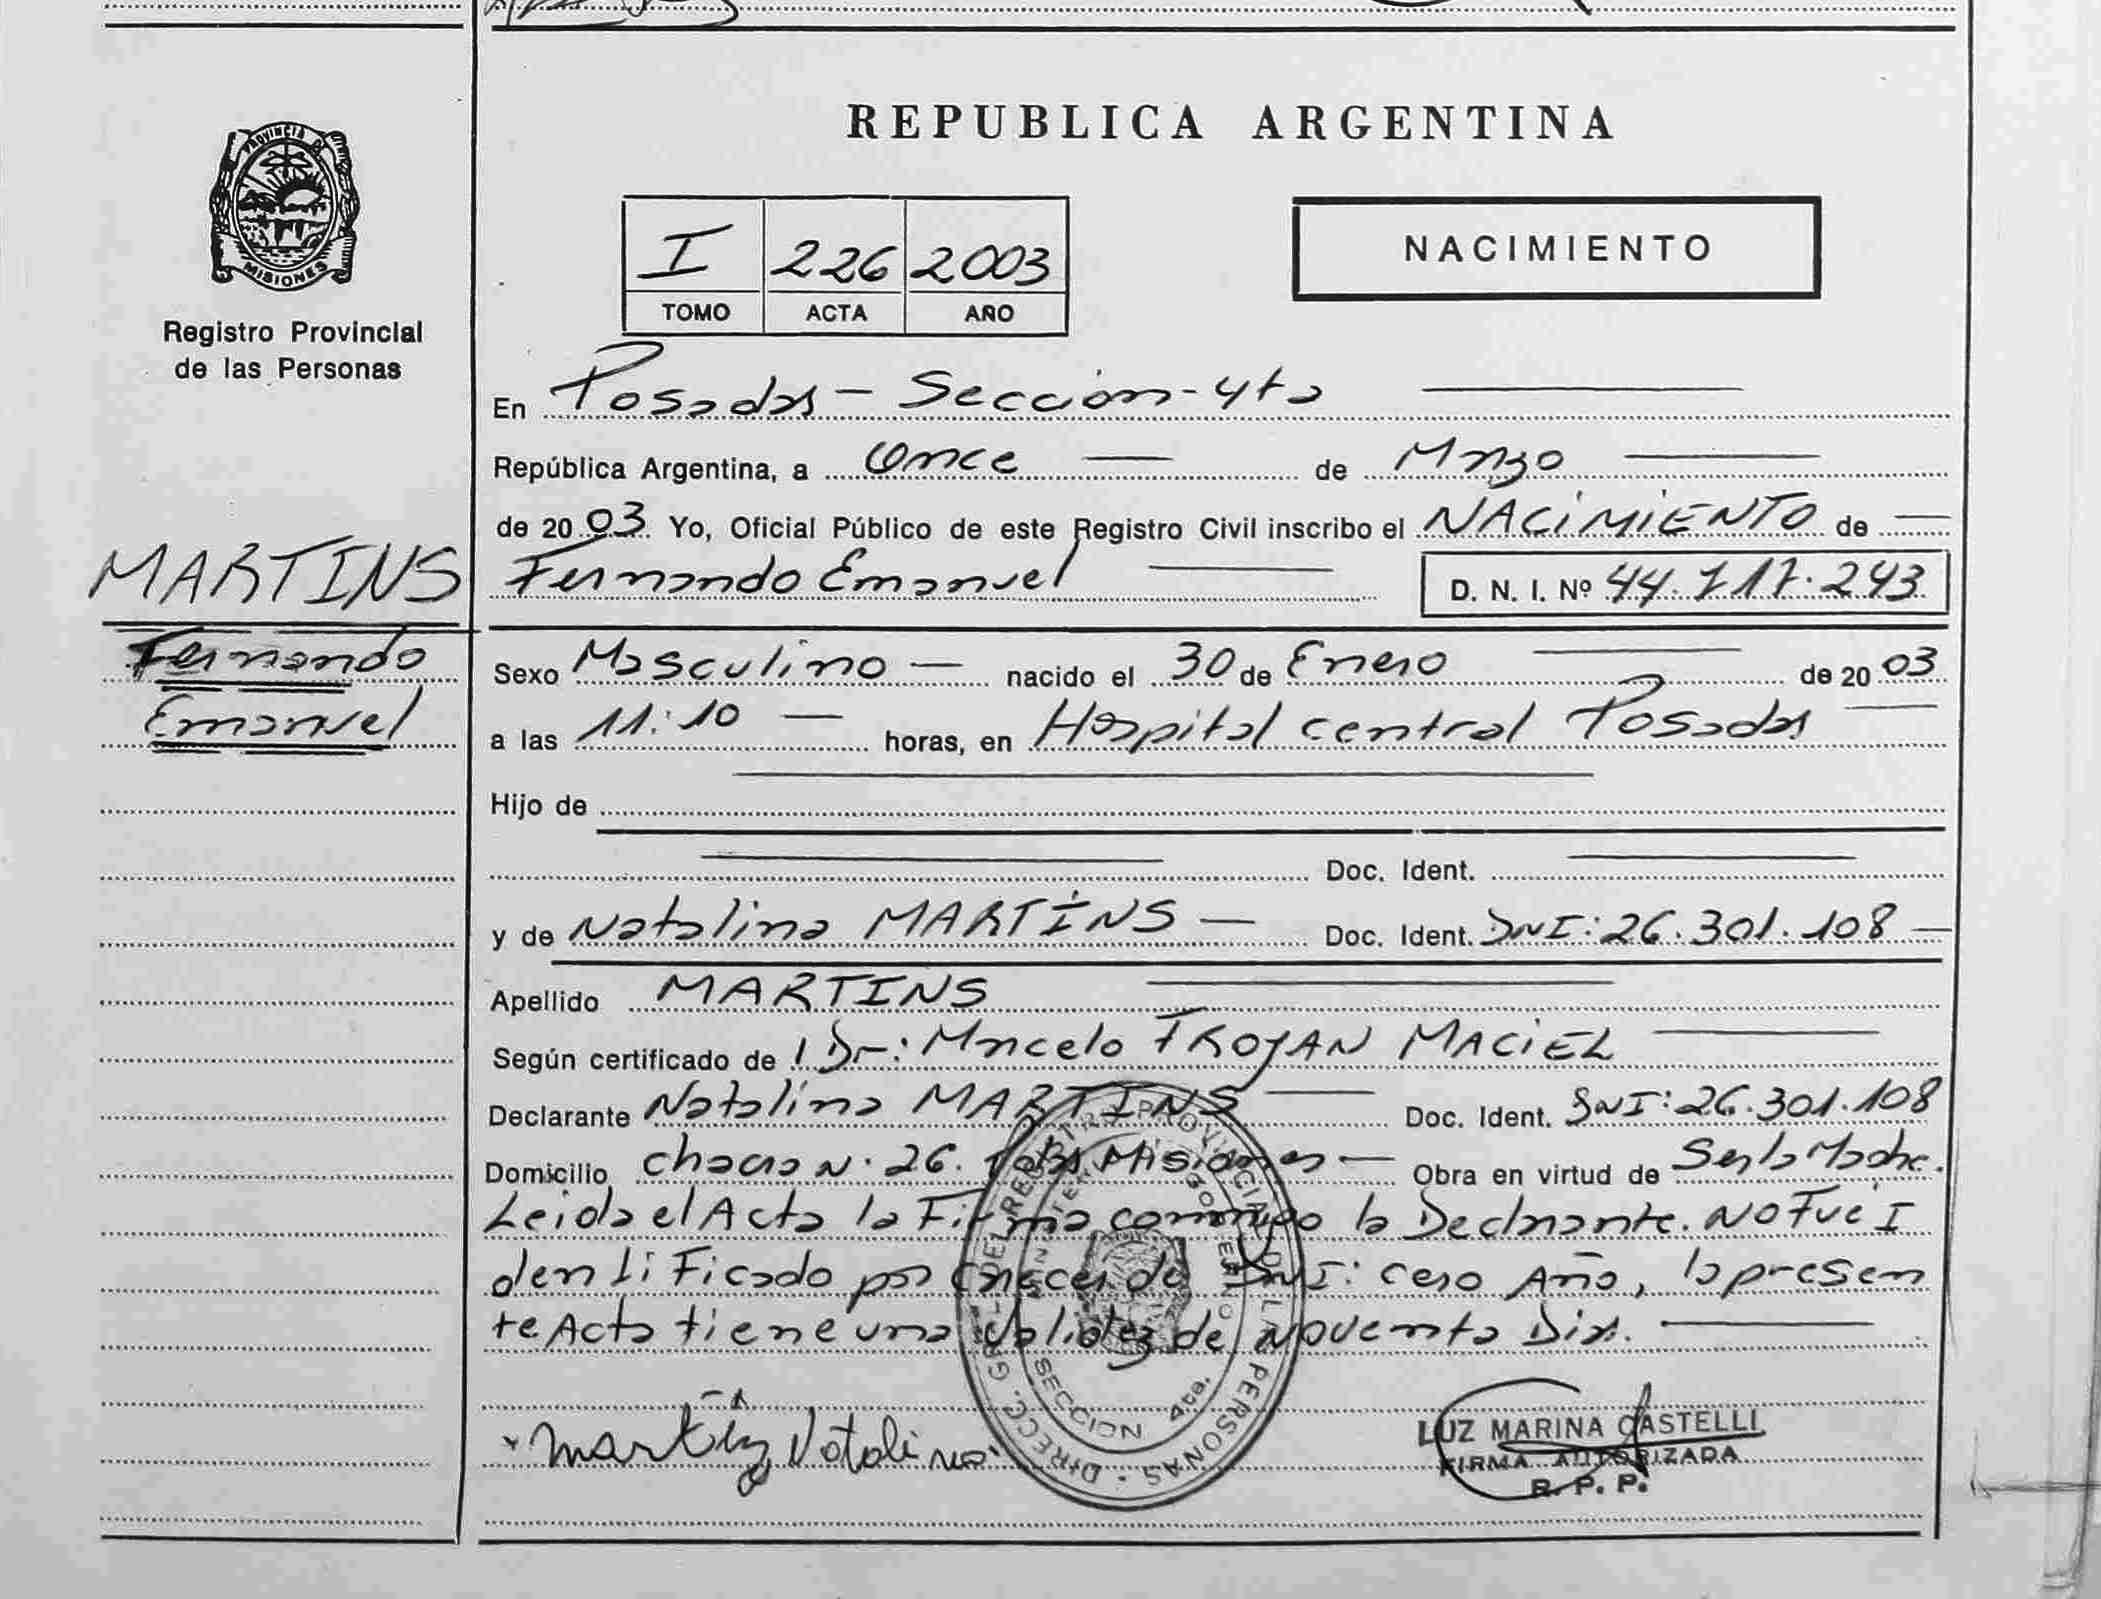 PROVINCIA DE
MISIONES
Registro Provincial
de las Personas
MARTINS
Fernando
Emanuel
REPUBLICA ARGENTINA
I 226 2003
TOMO ACTA AÑO
NACIMIENTO
En Posadas - Sección - 4ta
República Argentina, a Once de Marzo
de 2003 Yo, Oficial Público de este Registro Civil inscribo el NACIMIENTO de
Fernando Emanuel D. N. I. Nº 44.717.243
Sexo Masculino nacido el 30 de Enero de 2003
a las 11:10 horas, en Hospital central Posadas
Hijo de
Doc. Ident.
y de Natalina MARTINS Doc. Ident. DNI: 26.301.108
Apellido MARTINS
Según certificado de l Dr: Marcelo TROJAN MACIEL
Declarante Natalina MARTINS Doc. Ident. DNI: 26.301.108
Domicilio chacra N. 26. Pdas Misiones Obra en virtud de Ser la Madre.
Leida el Acta la Firma conmigo la Declarante. NO Fué I
dentiFicado por carecer de DNI: cero Año, la presen
te Acta tiene una Validez de Noventa Dias.
DIRECC. GRAL. DEL REGISTRO PROVINCIAL DE LAS PERSONAS
MINISTERIO GOBIERNO
SECCION 4ta.
Natalina
LUZ MARINA CASTELLI
FIRMA AUTORIZADA
R. P. P.